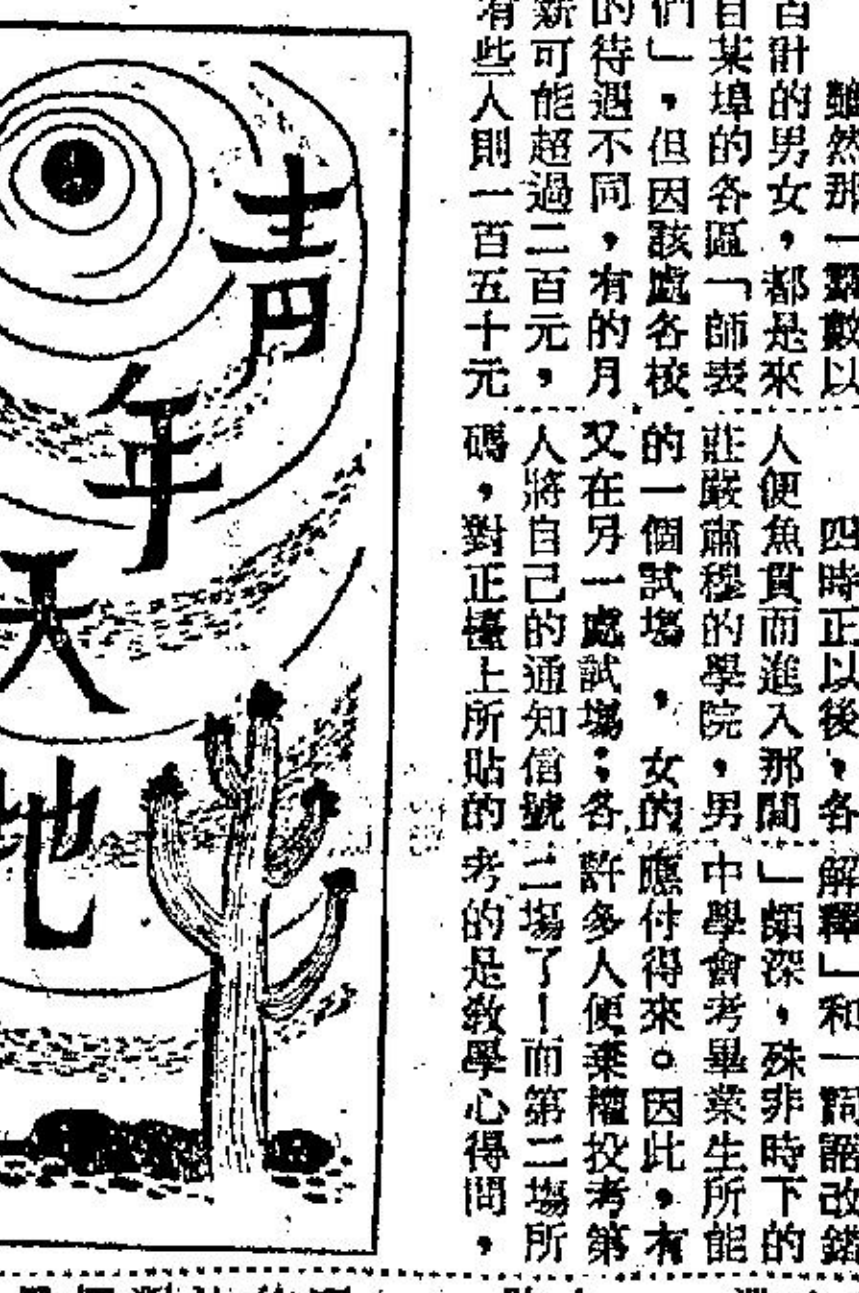 雖然那一羣數以
百計的男女,都是來
自某埠的各區「師表
們」,但因該處各校
的待遇不同,有的月
薪可能超過二百元,
有些人則一百五十元
四時正以後,各
人便魚貫而進入那間
莊嚴肅穆的學院,男
的一個試塲,女的
又在另一處試塲;各
人將自己的通知信號
碼,對正檯上所貼的
解釋」和「詞語改錯
」頗深,殊非時下的
中學會考畢業生所能
應付得來。因此,有
許多人便棄權投考第
二塲了!而第二塲所
考的是教學心得問,
青年天地